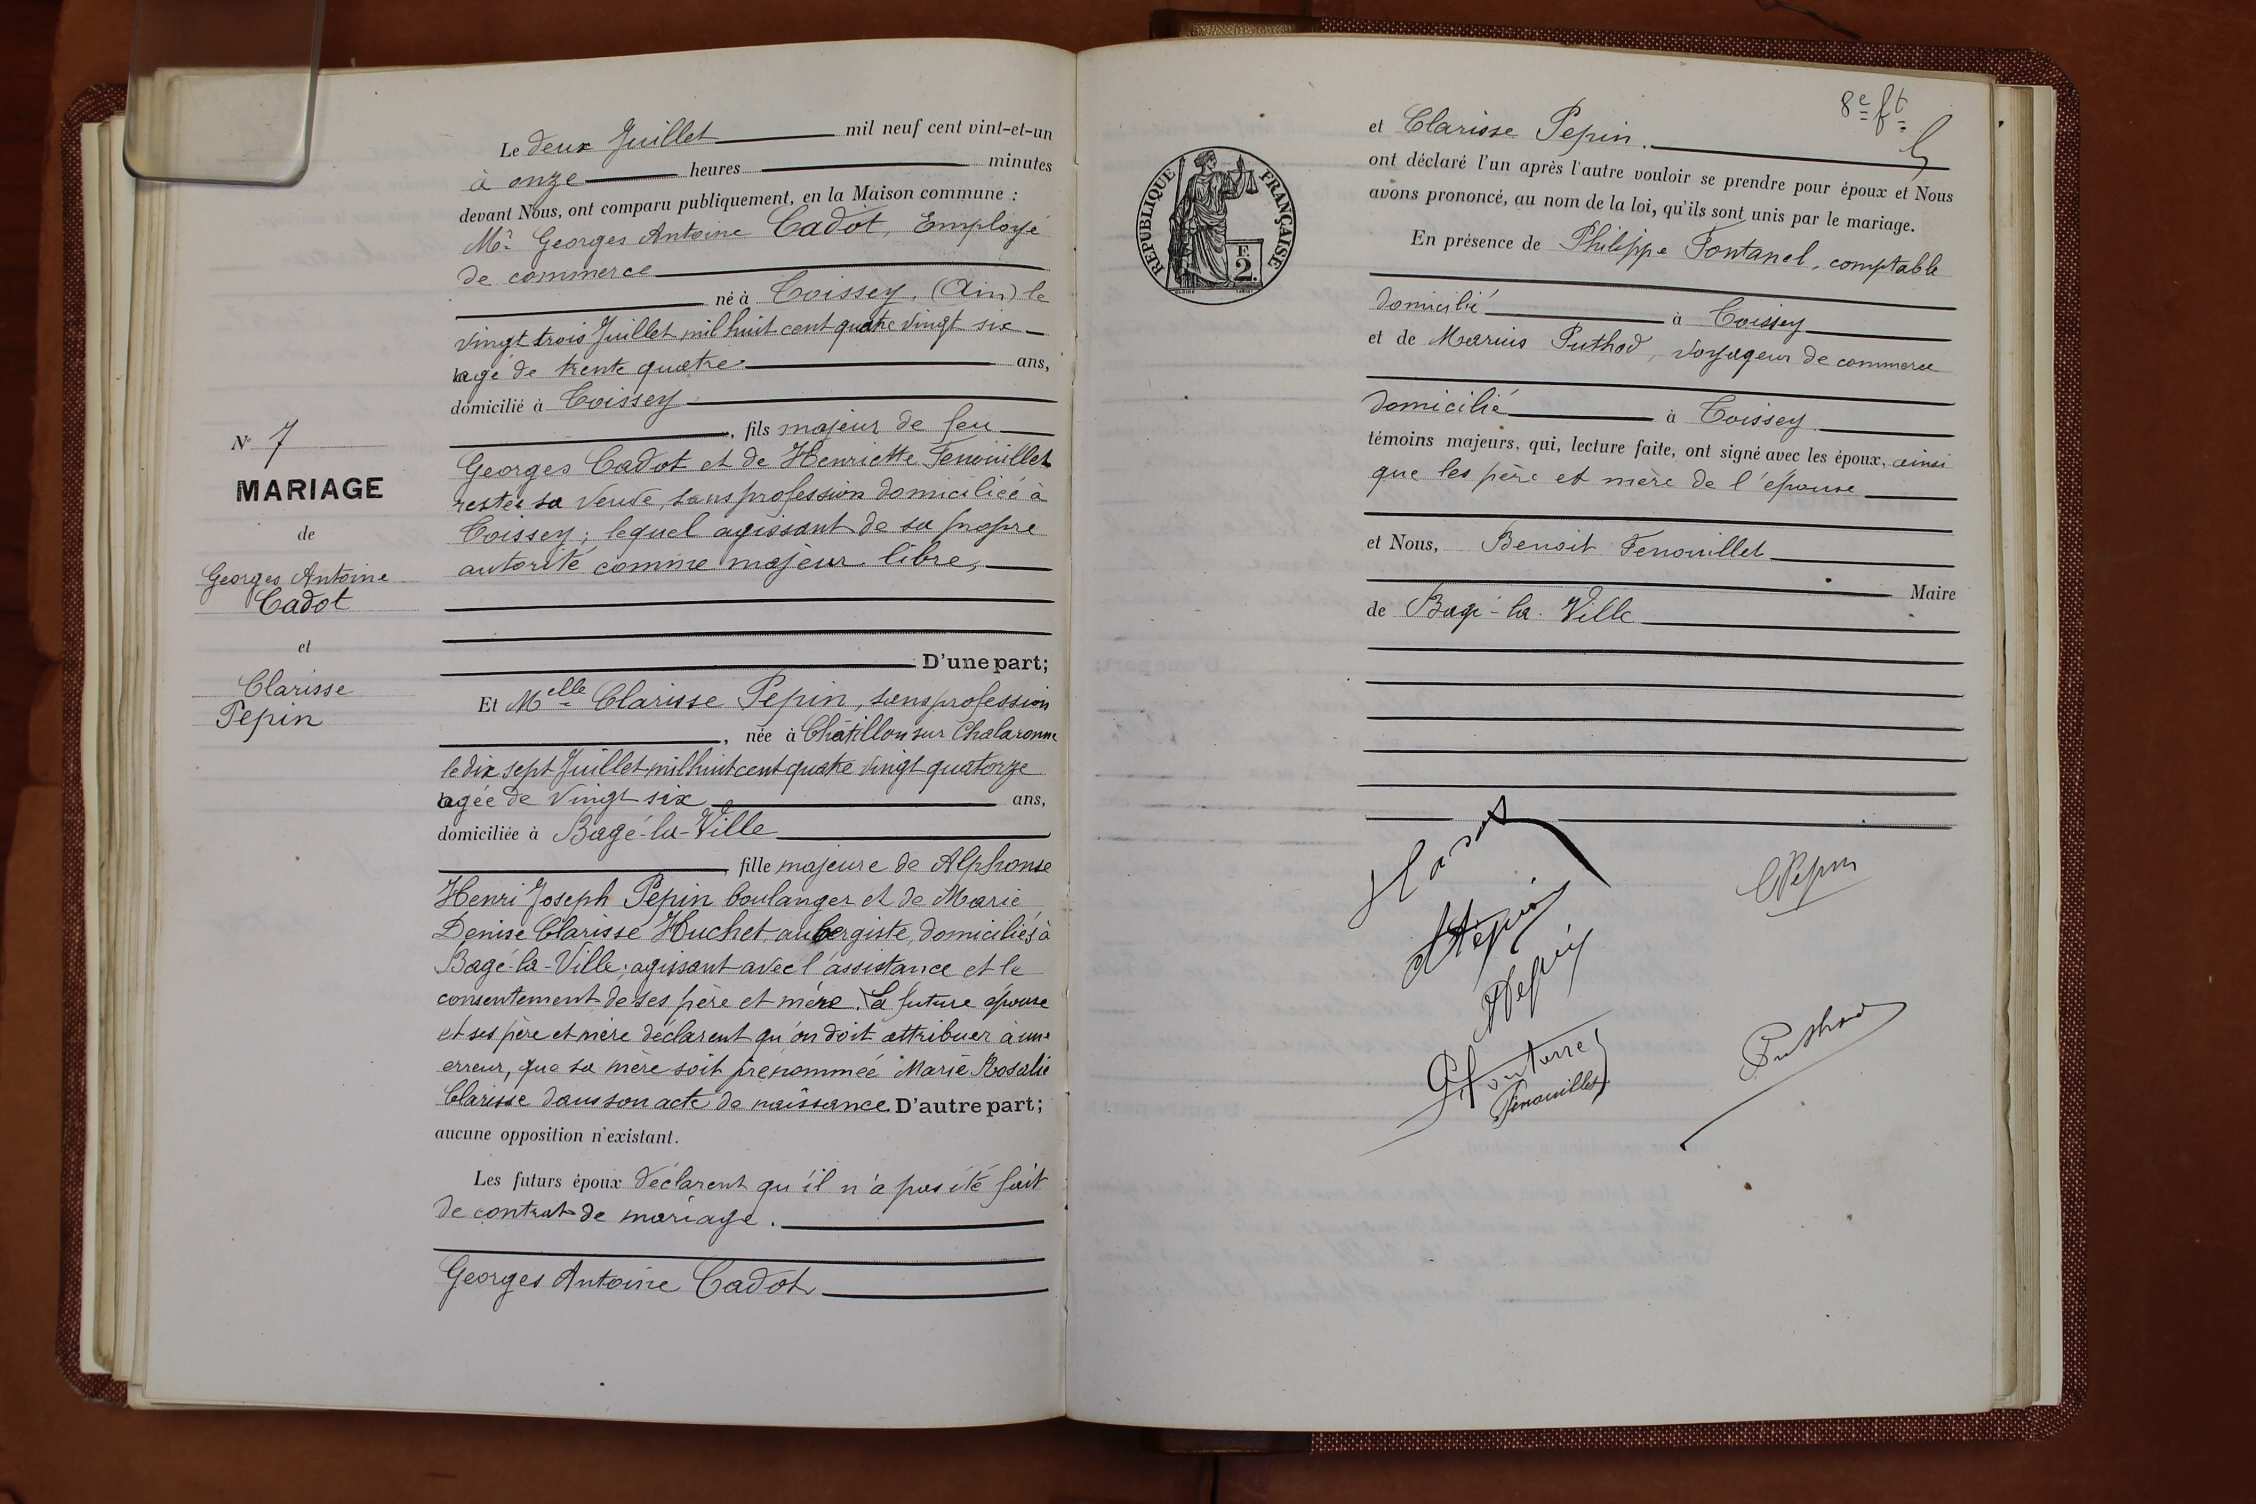 Le deux Juillet mil neuf cent vint-et-un
à onze heures minutes
devant Nous, ont comparu publiquement, en la Maison commune :
Mr Georges Antoine Cadot, Employé
de commerce
né à Toissey, (Ain) le
vingt trois Juillet mil huit cent quatre vingt six
agé de trente quatre ans,
domicilié à Toissey
, fils majeur de feu
Georges Cadot et de Henriette Fenouillet
restée sa veuve, sans profession domiciliée à
Toissey ; lequel agissant de sa propre
autorité comme majeur libre,
D'une part;
Et Melle Clarisse Pepin, sans profession
, née à Châtillon sur Chalaronne
le dix sept Juillet mil huit cent quatre vingt quatorze
agée de vingt six ans,
domiciliée à Bagé-la-Ville
, fille majeure de Alphonse
Henri Joseph Pepin boulanger et de Marie
Denise Clarisse Huchet, aubergiste, domiciliés à
Bagé-la-Ville ; agissant avec l'assistance et le
consentement de ses père et mère. La future épouse
et ses père et mère déclarent qu'on doit attribuer à une
erreur, que sa mère soit prénommée Marie Rosalie
Clarisse dans son acte de naissance. D'autre part;
aucune opposition n'existant.
Les futurs époux déclarent qu'il n'a pas été fait
de contrat de mariage.
Georges Antoine Cadot
N° 7
MARIAGE
de
Georges Antoine
Cadot
et
Clarisse
Pepin
8e ft
REPUBLIQUE FRANÇAISE
F.
2
et Clarisse Pepin.
ont déclaré l'un après l'autre vouloir se prendre pour époux et Nous
avons prononcé, au nom de la loi, qu'ils sont unis par le mariage.
En présence de Philippe Fontanel, comptable
domicilié à Toissey
et de Marius Puthod, voyageur de commerce
domicilié à Toissey
témoins majeurs, qui, lecture faite, ont signé avec les époux, ainsi
que les père et mère de l'épouse
et Nous, Benoit Fenouillet
Maire
de Bagé-la-Ville
Cadot
C Pepin
Pepin
Pepin
Puthod
Fenouillet